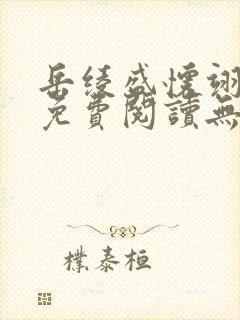 岳绫盛怀翊
免費閱讀無
樸泰桓